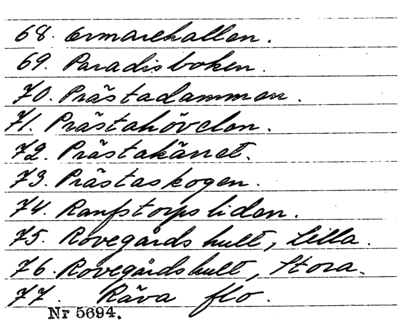 68. Ormarehallen.
69. Paradisboken.
70. Prästadammen.
71. Prästahövelen.
72. Prästakänet.
73. Prästaskogen.
74. Ranstorpsliden.
75. Rovegårdshult, Lilla.
76. Rovegårdshult, Stora.
77. Räva flo.
Nr 5694.